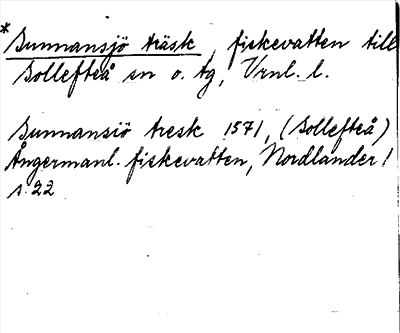 *Sunnansjö träsk, fiskevatten till
Sollefteå sn o. tg, Vrnl. l.
Sunnansiö tresk 1571, (Sollefteå)
Ångermanl. fiskevatten, Nordlander 1
s. 22